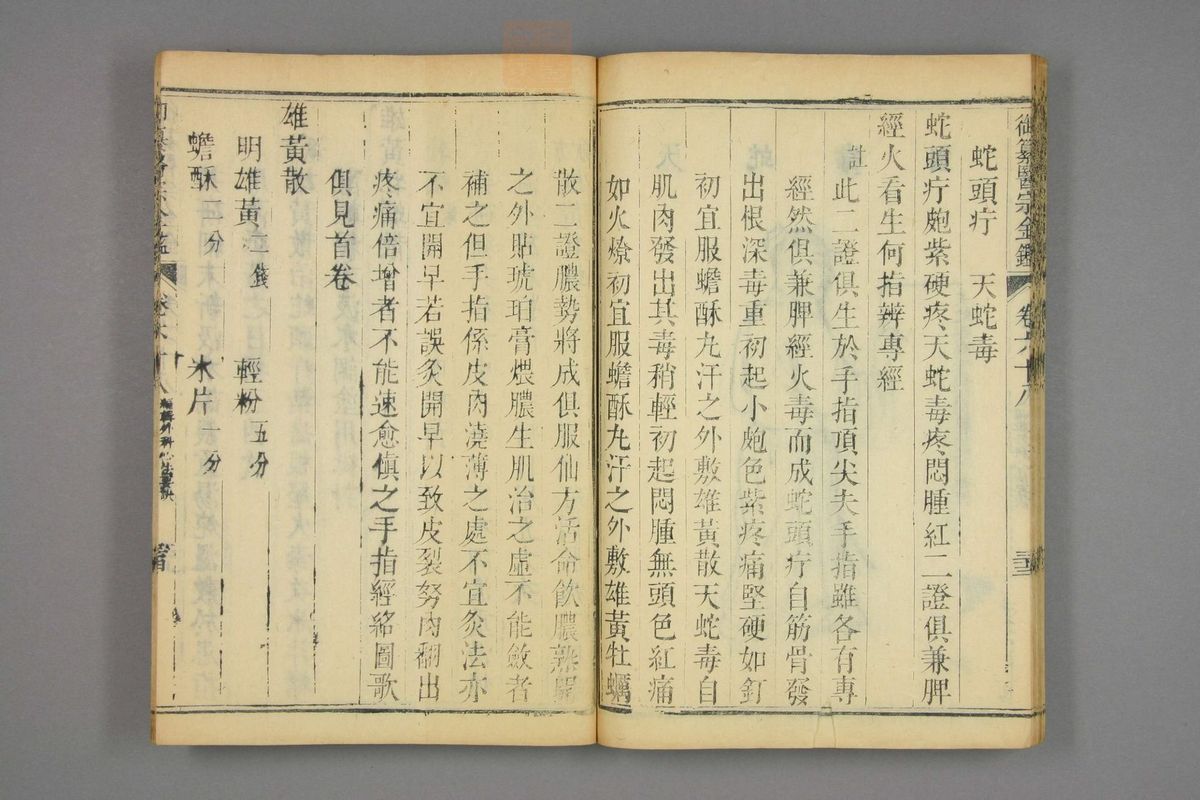 御纂醫宗金鑑 卷六十八
蛇頭疔 天蛇毒
蛇頭疔皰紫硬疼天蛇毒疼悶腫紅二證俱兼脾
經火看生何指辨專經
註此二證俱生於手指頂尖夫手指雖各有專
經然俱兼脾經火毒而成蛇頭疔自筋骨發
出根深毒重初起小皰色紫疼痛堅硬如釘
初宜服蟾酥丸汗之外敷雄黃散天蛇毒自
肌肉發出其毒稍輕初起悶腫無頭色紅痛
如火燎初宜服蟾酥丸汗之外敷雄黃牡蠣
散二證膿勢將成俱服仙方活命飲膿熟開
之外貼琥珀膏煨膿生肌治之虛不能斂者
補之但手指係皮肉澆薄之處不宜灸法亦
不宜開早若誤灸開早以致皮裂努肉翻出
疼痛倍增者不能速愈慎之手指經絡圖歌
俱見首卷
雄黃散
明雄黃二錢 輕粉五分
蟾酥二分 冰片一分
編輯外科心法要訣